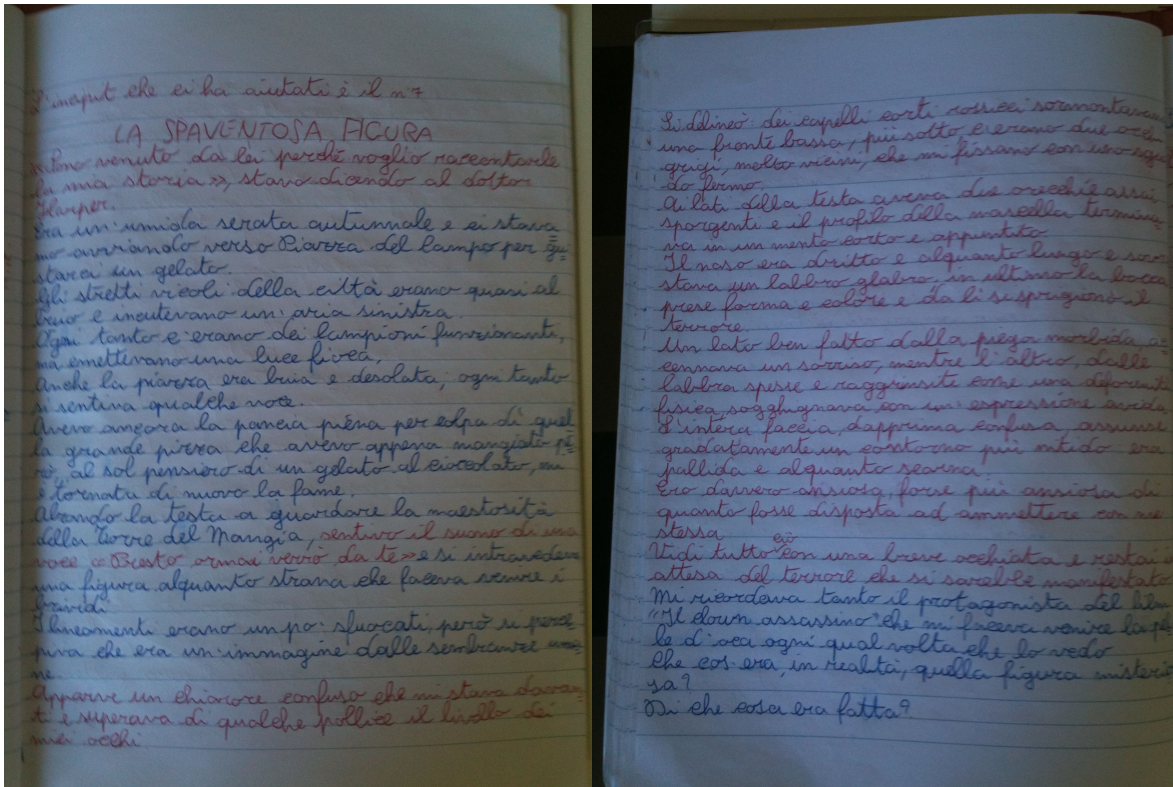 L'incipit che ci ha aiutati è il n° 7
LA SPAVENTOSA FIGURA
venuto da lei perché voglio raccontarle
la mia storia», stavo dicendo al dottor
Harper.
Era un'umida serata autunnale e ci stava=
mo avviando verso Piazza del Campo per gu=
starci un gelato.
Gli stretti vicoli della città erano quasi al
buio e incutevano un'aria sinistra.
Ogni tanto c'erano dei lampioni funzionanti,
ma emettevano una luce fioca.
Anche la piazza era buia e desolata, ogni tanto
si sentiva qualche voce.
Avevo ancora la pancia piena per colpa di quel
la grande pizza che avevo appena mangiato pe=
rò, al sol pensiero di un gelato al cioccolato, mi
è tornata di nuovo la fame.
Alzando la testa a guardare la maestosità
della Torre del Mangia, sentivo il suono di una
voce «Presto ormai verrò da te» e si intravedeva
una figura alquanto strana che faceva venire i
brividi
I lineamenti erano un po' sfuocati, però si perce=
piva che era un'immagine dalle sembianze uma=
ne
Apparve un chiarore confuso che mi stava davan=
ti e superava di qualche pollice il livello dei
miei occhi
Si delineò: dei capelli corti rossicci sormontavano
una fronte bassa, più sotto c'erano due occhi
grigi, molto vicini, che mi fissano con uno sguar
do fermo.
Ai lati della testa aveva due orecchie assai
sporgenti e il profilo della mascella termina
va in un mento corto e appuntito
Il naso era diritto e alquanto lungo e sovra
stava un labbro glabro, in ultimo la bocca
prese forma e colore e da lì si sprigionò il
terrore.
Un lato ben fatto dalla piega morbida ac
cennava un sorriso, mentre l'altro, dalle
labbra spesse e raggrinsite come una deformità
fisica, sogghignava con un'espressione avida
L'intera faccia, dapprima confusa, assunse
gradatamente un contorno più nitido era
pallida e alquanto scarna
Ero davvero ansiosa, forse più ansiosa di
quanto fosse disposta ad ammettere con me
stessa
Vidi tutto ciò con una breve occhiata e restai in
attesa del terrore che si sarebbe manifestato
Mi ricordava tanto il protagonista del film
"Il clown assassino" che mi faceva venire la pel
le d'oca ogni qual volta che lo vedo
Che cos'era, in realtà, quella figura misterio
sa?
Di che cosa era fatta?